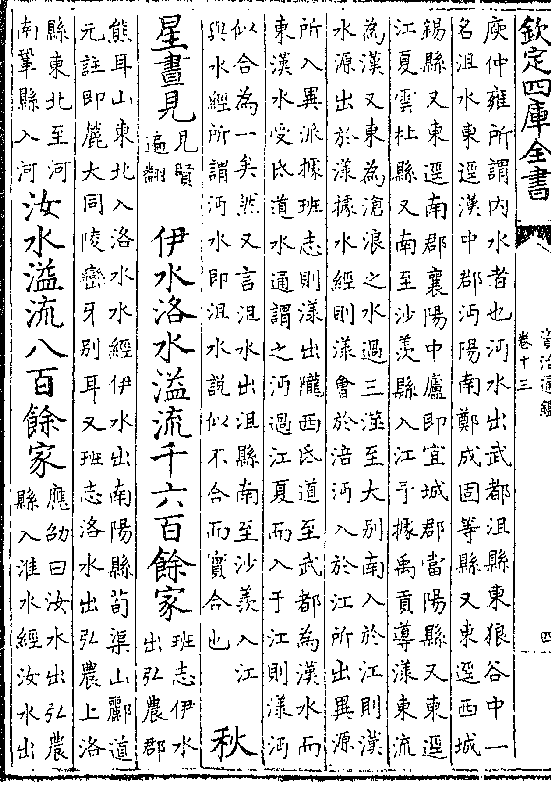 欽定四庫全書
資治通鑑
卷十三
四
庾仲雍所謂内水者也沔水出武都沮縣東狼谷中一
名沮水東逕漢中郡沔陽南鄭成固等縣又東逕西城
錫縣又東逕南郡襄陽中廬即宜城郡當陽縣又東逕
江夏雲杜縣又南至沙羨縣入江予據禹貢導漾東流
為漢又東為滄浪之水過三澨至大别南入於江則漢
水源出於漾據水經則漾會於涪沔入於江所出異源
所入異派據班志則漾出隴西氐道至武都為漢水而
東漢水受氐道水通謂之沔過江夏而入于江則漾沔
似合為一矣然又言沮水出沮縣南至沙羨入江
與水經所謂沔水即沮水說似不合而實合也
秋
星晝見
見賢
遍翻
伊水洛水溢流千六百餘家
班志伊水
出弘農郡
熊耳山東北入洛水水經伊水出南陽縣荀渠山酈道
元註即麓大同陵巒牙别耳又班志洛水出弘農上洛
縣東北至河
南鞏縣入河
汝水溢流八百餘家
應劭曰汝水出弘農
縣入淮水經汝水出